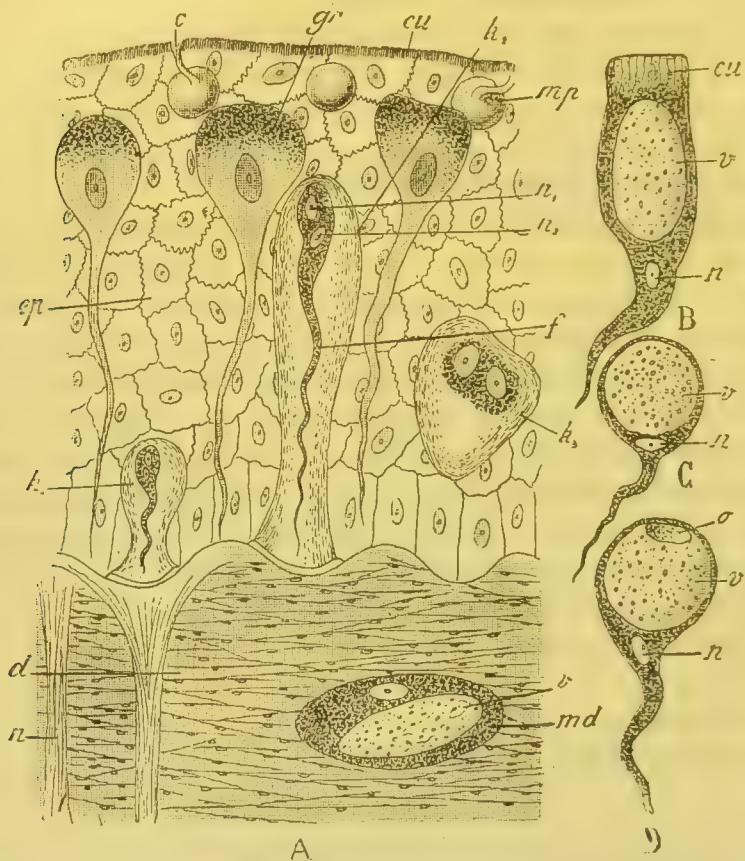 c gr cu k₂
mp
n₁
n₂
ep
f
k₃
k
d
n
v
md
A
cu
v
n
B
v
n
C
o
v
n
D